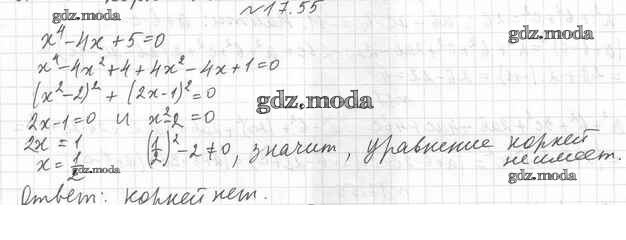 №17.55
gdz.moda
x⁴-4x+5=0
gdz.moda
x⁴-4x²+4+4x²-4x+1=0
(x²-2)²+(2x-1)²=0
gdz.moda
2x-1=0 и x²-2=0
2x=1
x=1/2 (1/2)²-2≠0, значит, уравнение корней
не имеет.
gdz.moda
gdz.moda
Ответ: корней нет.